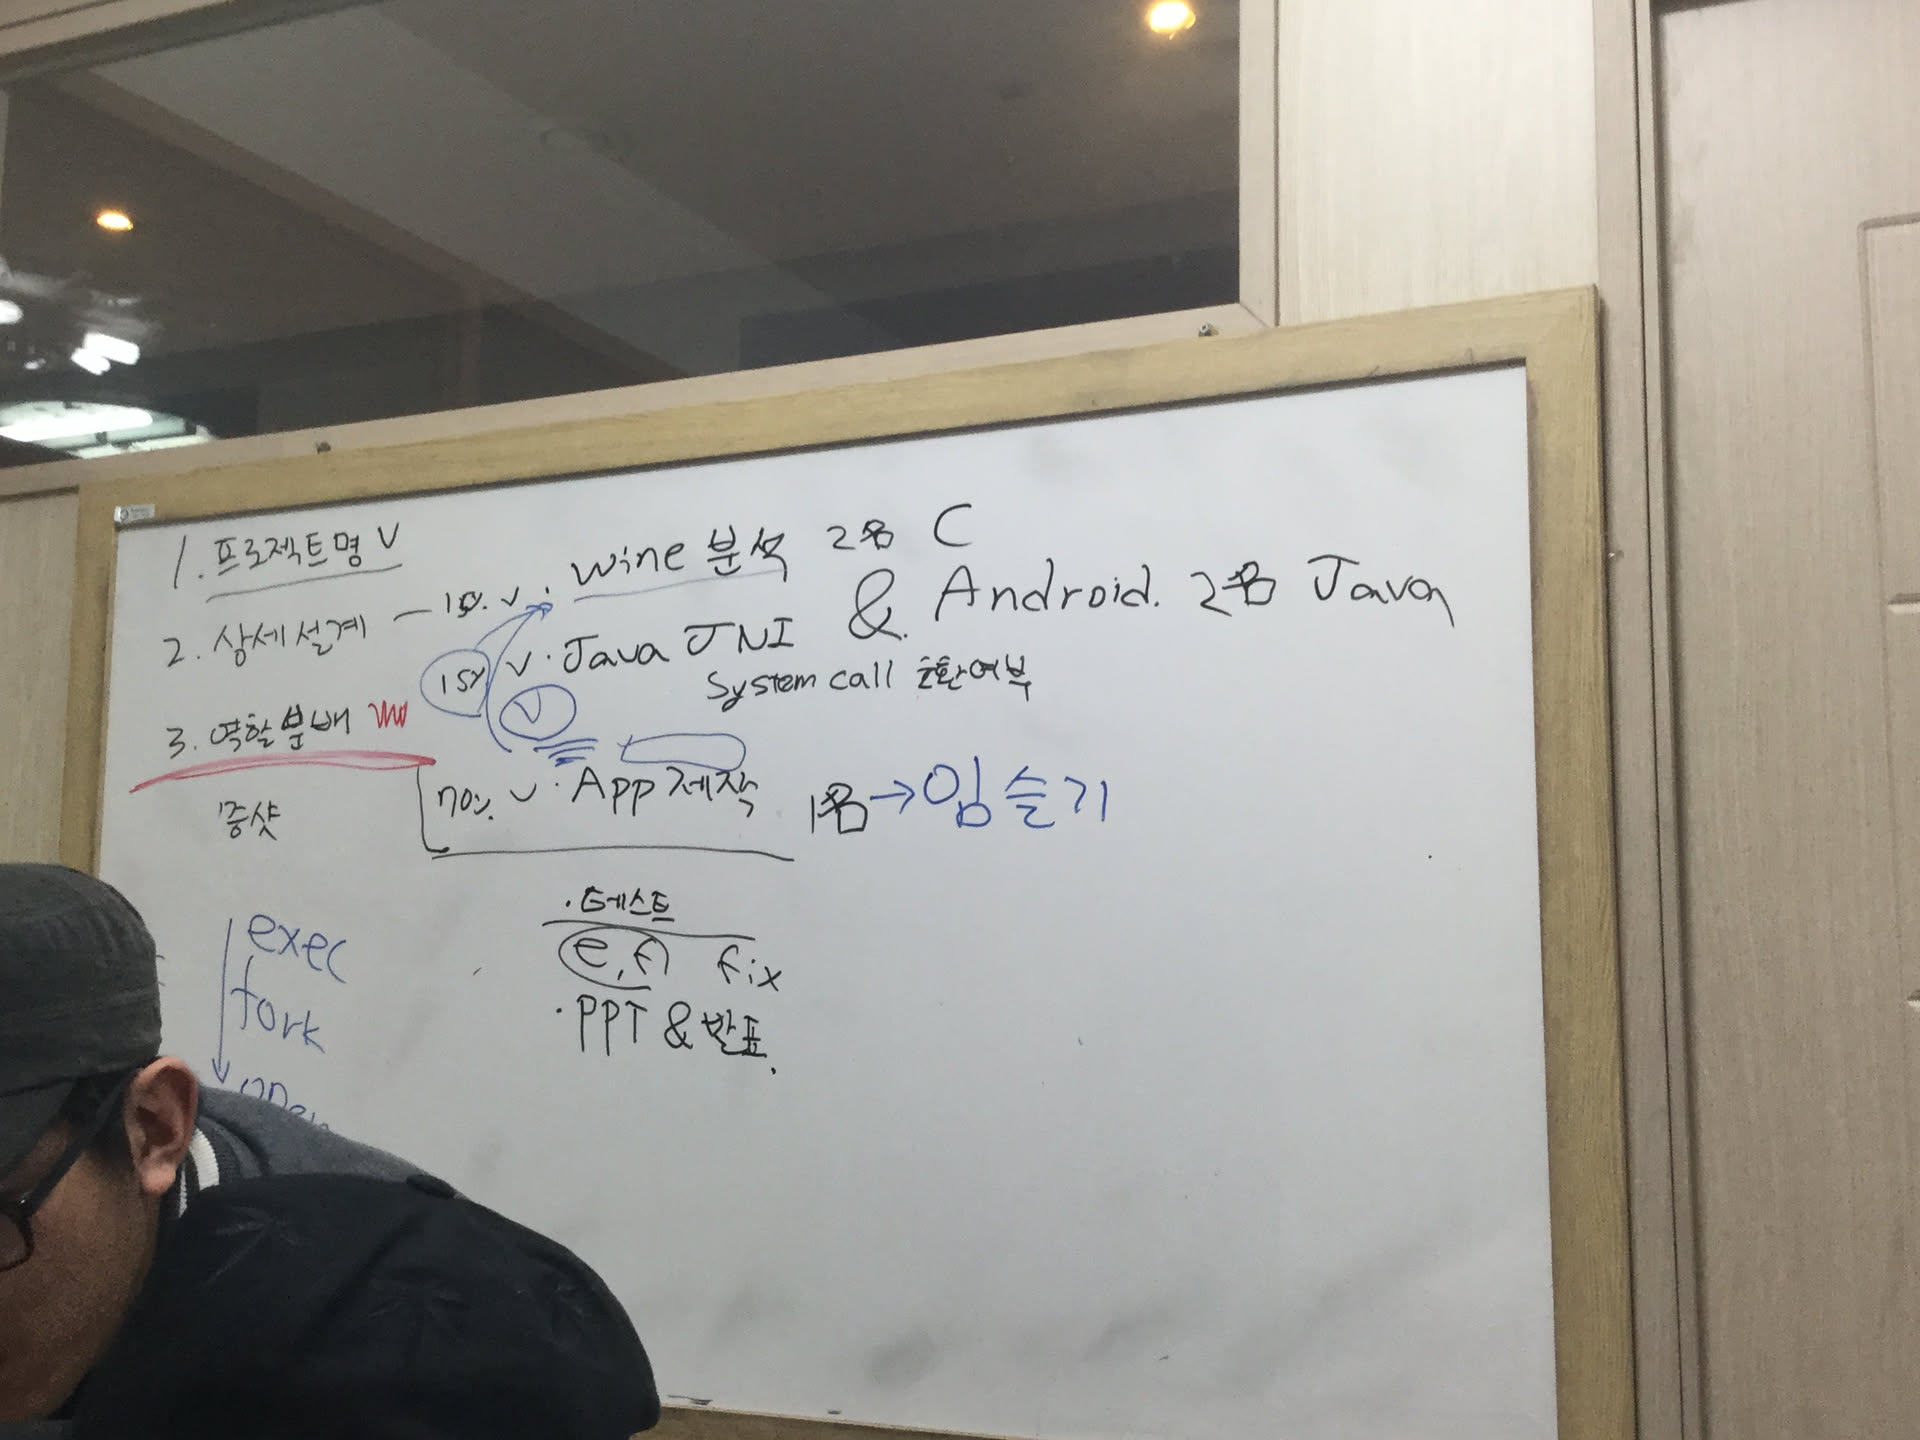 1. 프로젝트명 V
2. 상세설계 - 15%. V · wine 분석 2명 C
15% V · Java JNI & Android. 2명 Java
System call 호환여부
V
3. 역할분배
70%. V · App 제작 1명 → 임슬기
· 테스트
e, f fix
· PPT & 발표.
exec
fork